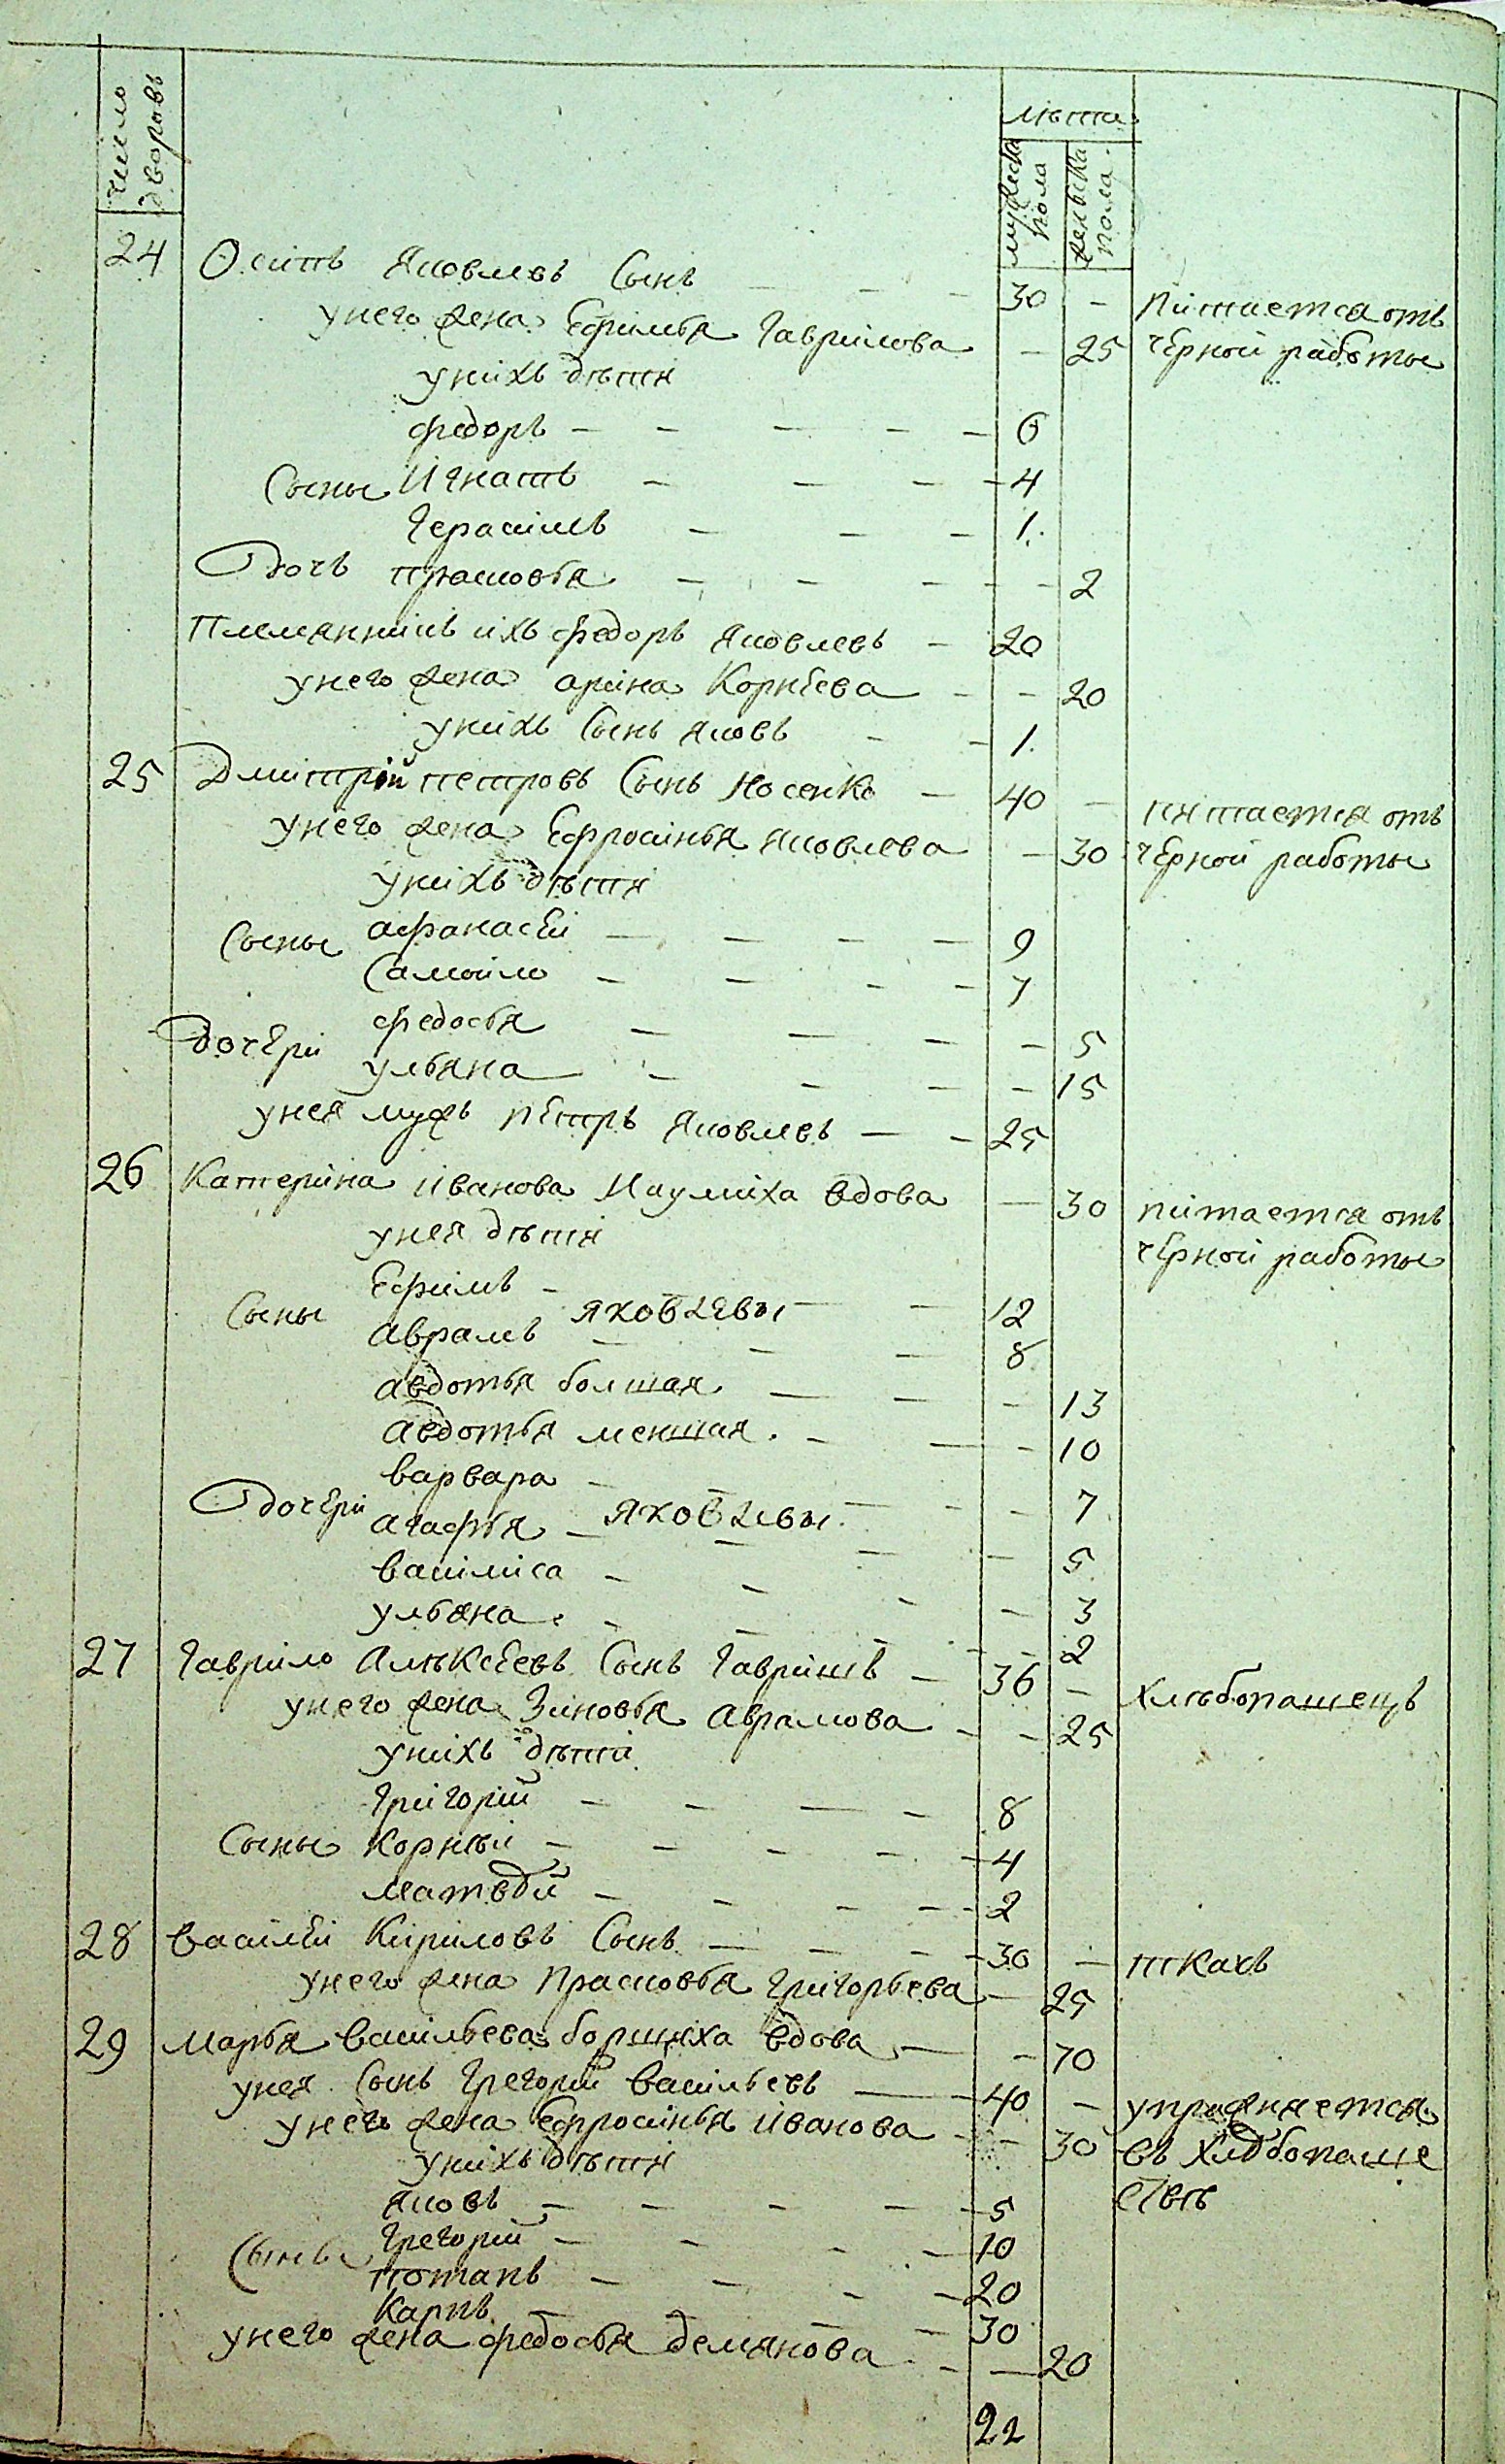 число дворовъ
лѣта
мужеска пола
женьска пола
24 Осипъ Яковлевъ Сынъ — — — 30 — питается отъ
унего жена Ефимья Гаврилова — 25 чЕрной работы
унихъ дѣти
федоръ — — — — — 6
Сыны Игнатъ — — — — 4
Герасимъ — — — 1
дочь прасковья — — — — — 2
Племянникъ ихъ федоръ Яковлевъ — 20
унего жена арина КорнЕева — — 20
унихъ Сынъ Яковъ — — 1
25 Дмитрій петровъ Сынъ Носенко — 40 — питается отъ
унего жена Ефросинья Яковлева — 30 чЕрной работы
унихъ дѣти
Сыны афанасЕй — — — — 9
Самойло — — — — 7
дочЕри федосья — — — — 5
ульяна — — — — 15
унея мужъ пЕтръ Яковлевъ — — 25
26 Катерина Иванова Наумиха вдова — 30 питается отъ
унея дѣти чЕрной работы
Ефимъ — — — 12
Сыны Яковлевы
аврамъ — — — 8
авдотья болшая — — — 13
авдотья меншая — — — 10
варвара — — — — 7
дочЕри агафья — Яковлевы — — — 5
василиса — — — — 3
ульяна — — — — — 2
27 Гаврило АлѣКсЕевъ Сынъ Гавришъ — 36 — хлѣбопашецъ
унего жена Зиновья Аврамова — — 25
унихъ дѣти
Григорій — — — — 8
Сыны Корнѣй — — — — — 4
Матвѣй — — — — — 2
28 василЕй Кириловъ Сынъ — — — — 30 — ткачъ
унего жена Прасковья Григорьева — 25
29 Марья васильева борщиха вдова — — 70
унея Сынъ Грегорій васильевъ — — 40 — упражняется
унего жена Ефросинья Иванова — — 30 въ хлѣбопаше
унихъ дѣти ствѣ
Яковъ — — — — — 5
Грегорій — — — — 10
Сыны потапъ — — — — 20
Карпъ — — — 30
унего жена федосья демянова — — 20
22